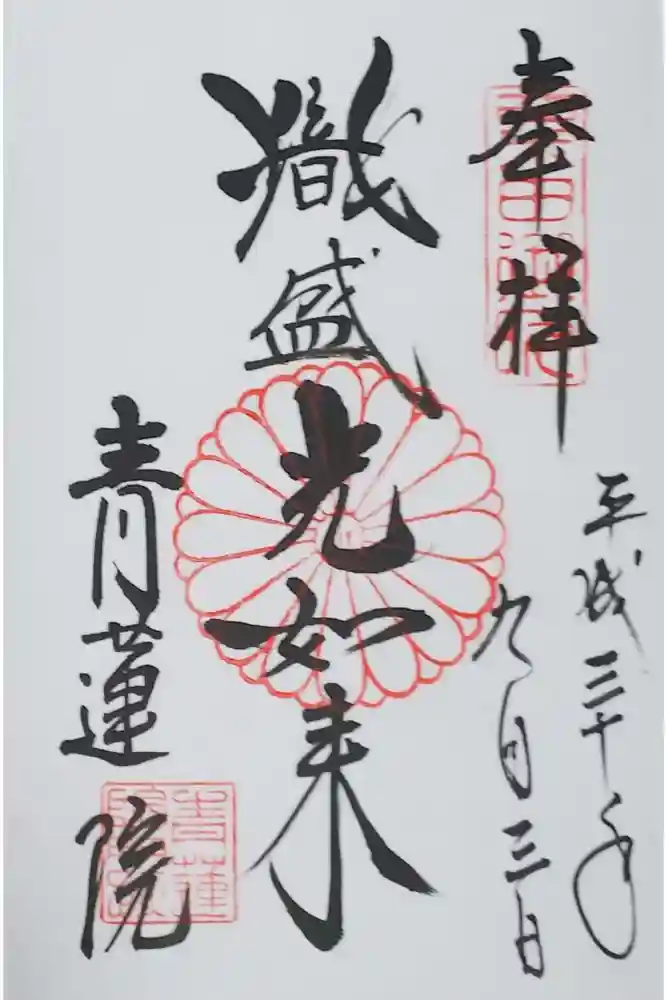 奉拝
平成三十年
九月三日
熾盛光如来
青蓮院